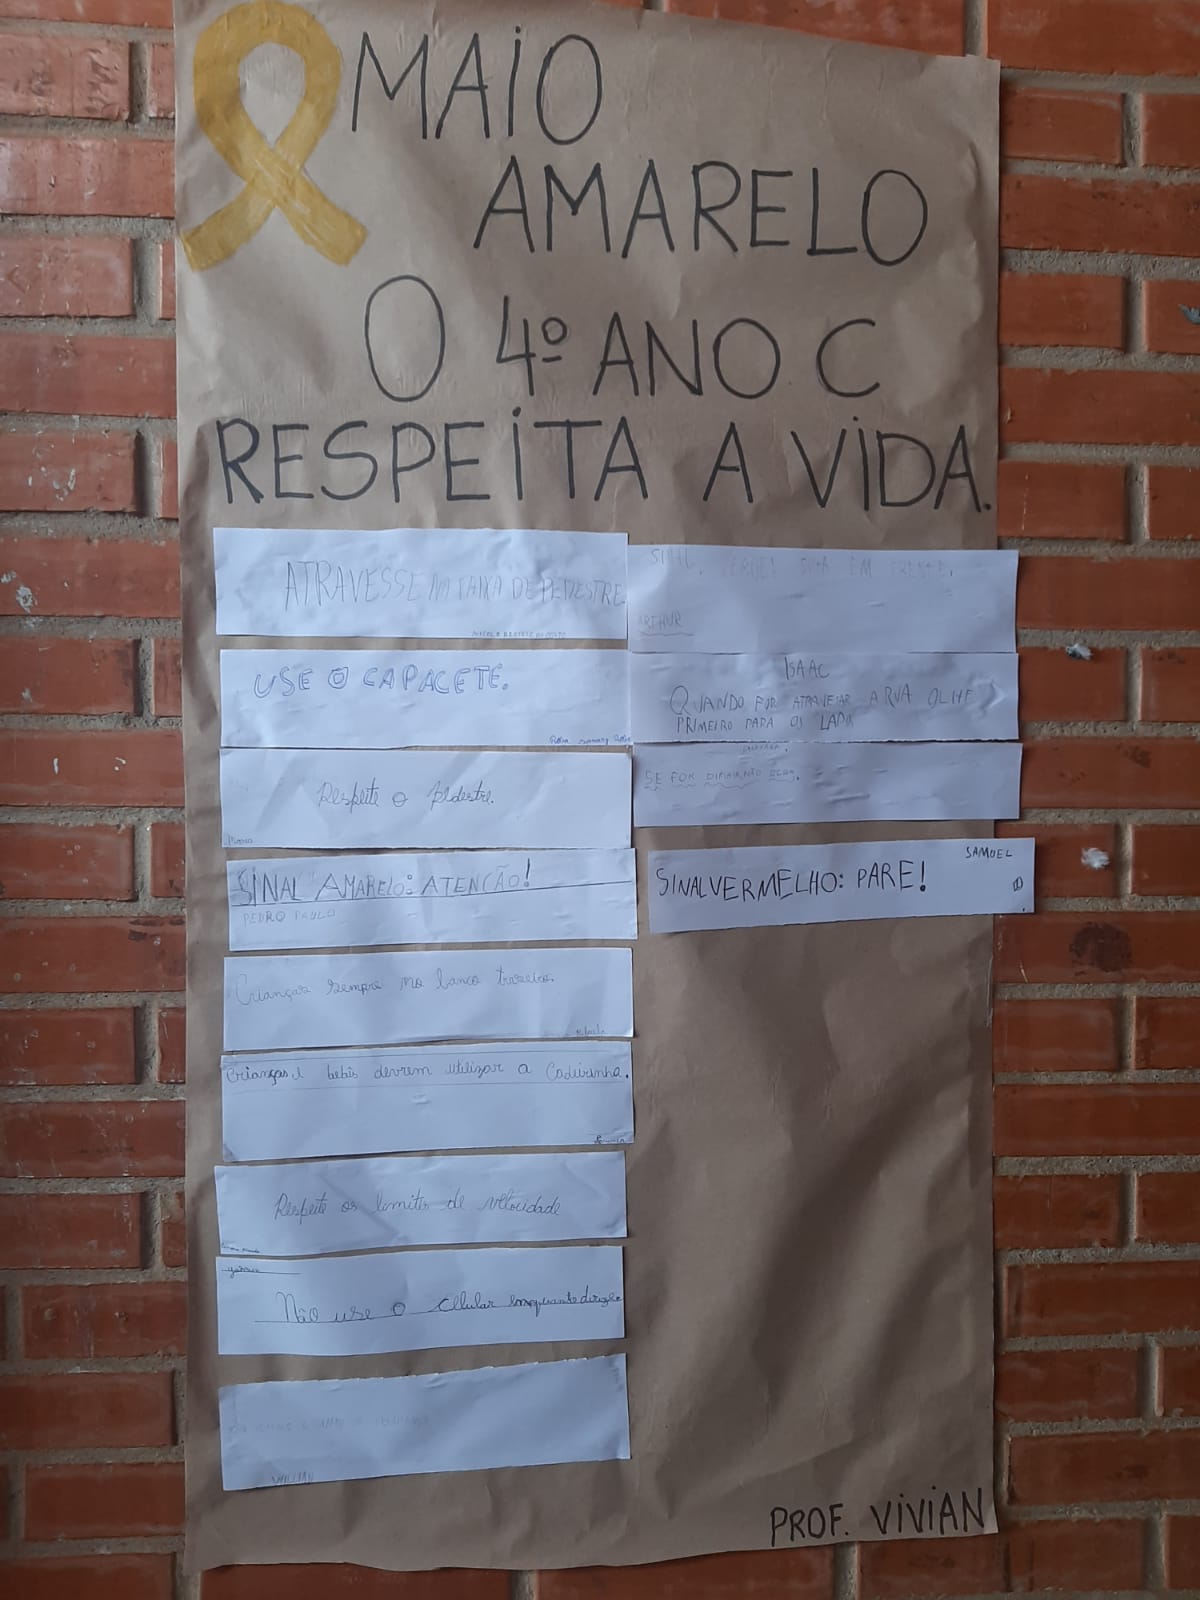 MAIO
AMARELO
O 4º ANO C
RESPEITA A VIDA.
ATRAVESSE NA FAIXA DE PEDESTRE
USE O CAPACETE.
Respeite o pedestre.
SINAL AMARELO: ATENÇÃO!
PEDRO PAULO
Crianças sempre no banco trazeiro.
Crianças e bebês devrem utilizar a Cadeirinha.
Respeite os limites de velocidade
Não use o celular enquanto dirige
WILLIAN
SINAL VERDE! SIGA EM FRENTE.
ARTHUR
ISAAC
QUANDO FOR ATRAVEÇAR A RUA OLHE
PRIMEIRO PARA OS LADO
SE FOR DIRIGIR NÃO BEBA.
SAMUEL
SINAL VERMELHO: PARE!
PROF. VIVIAN